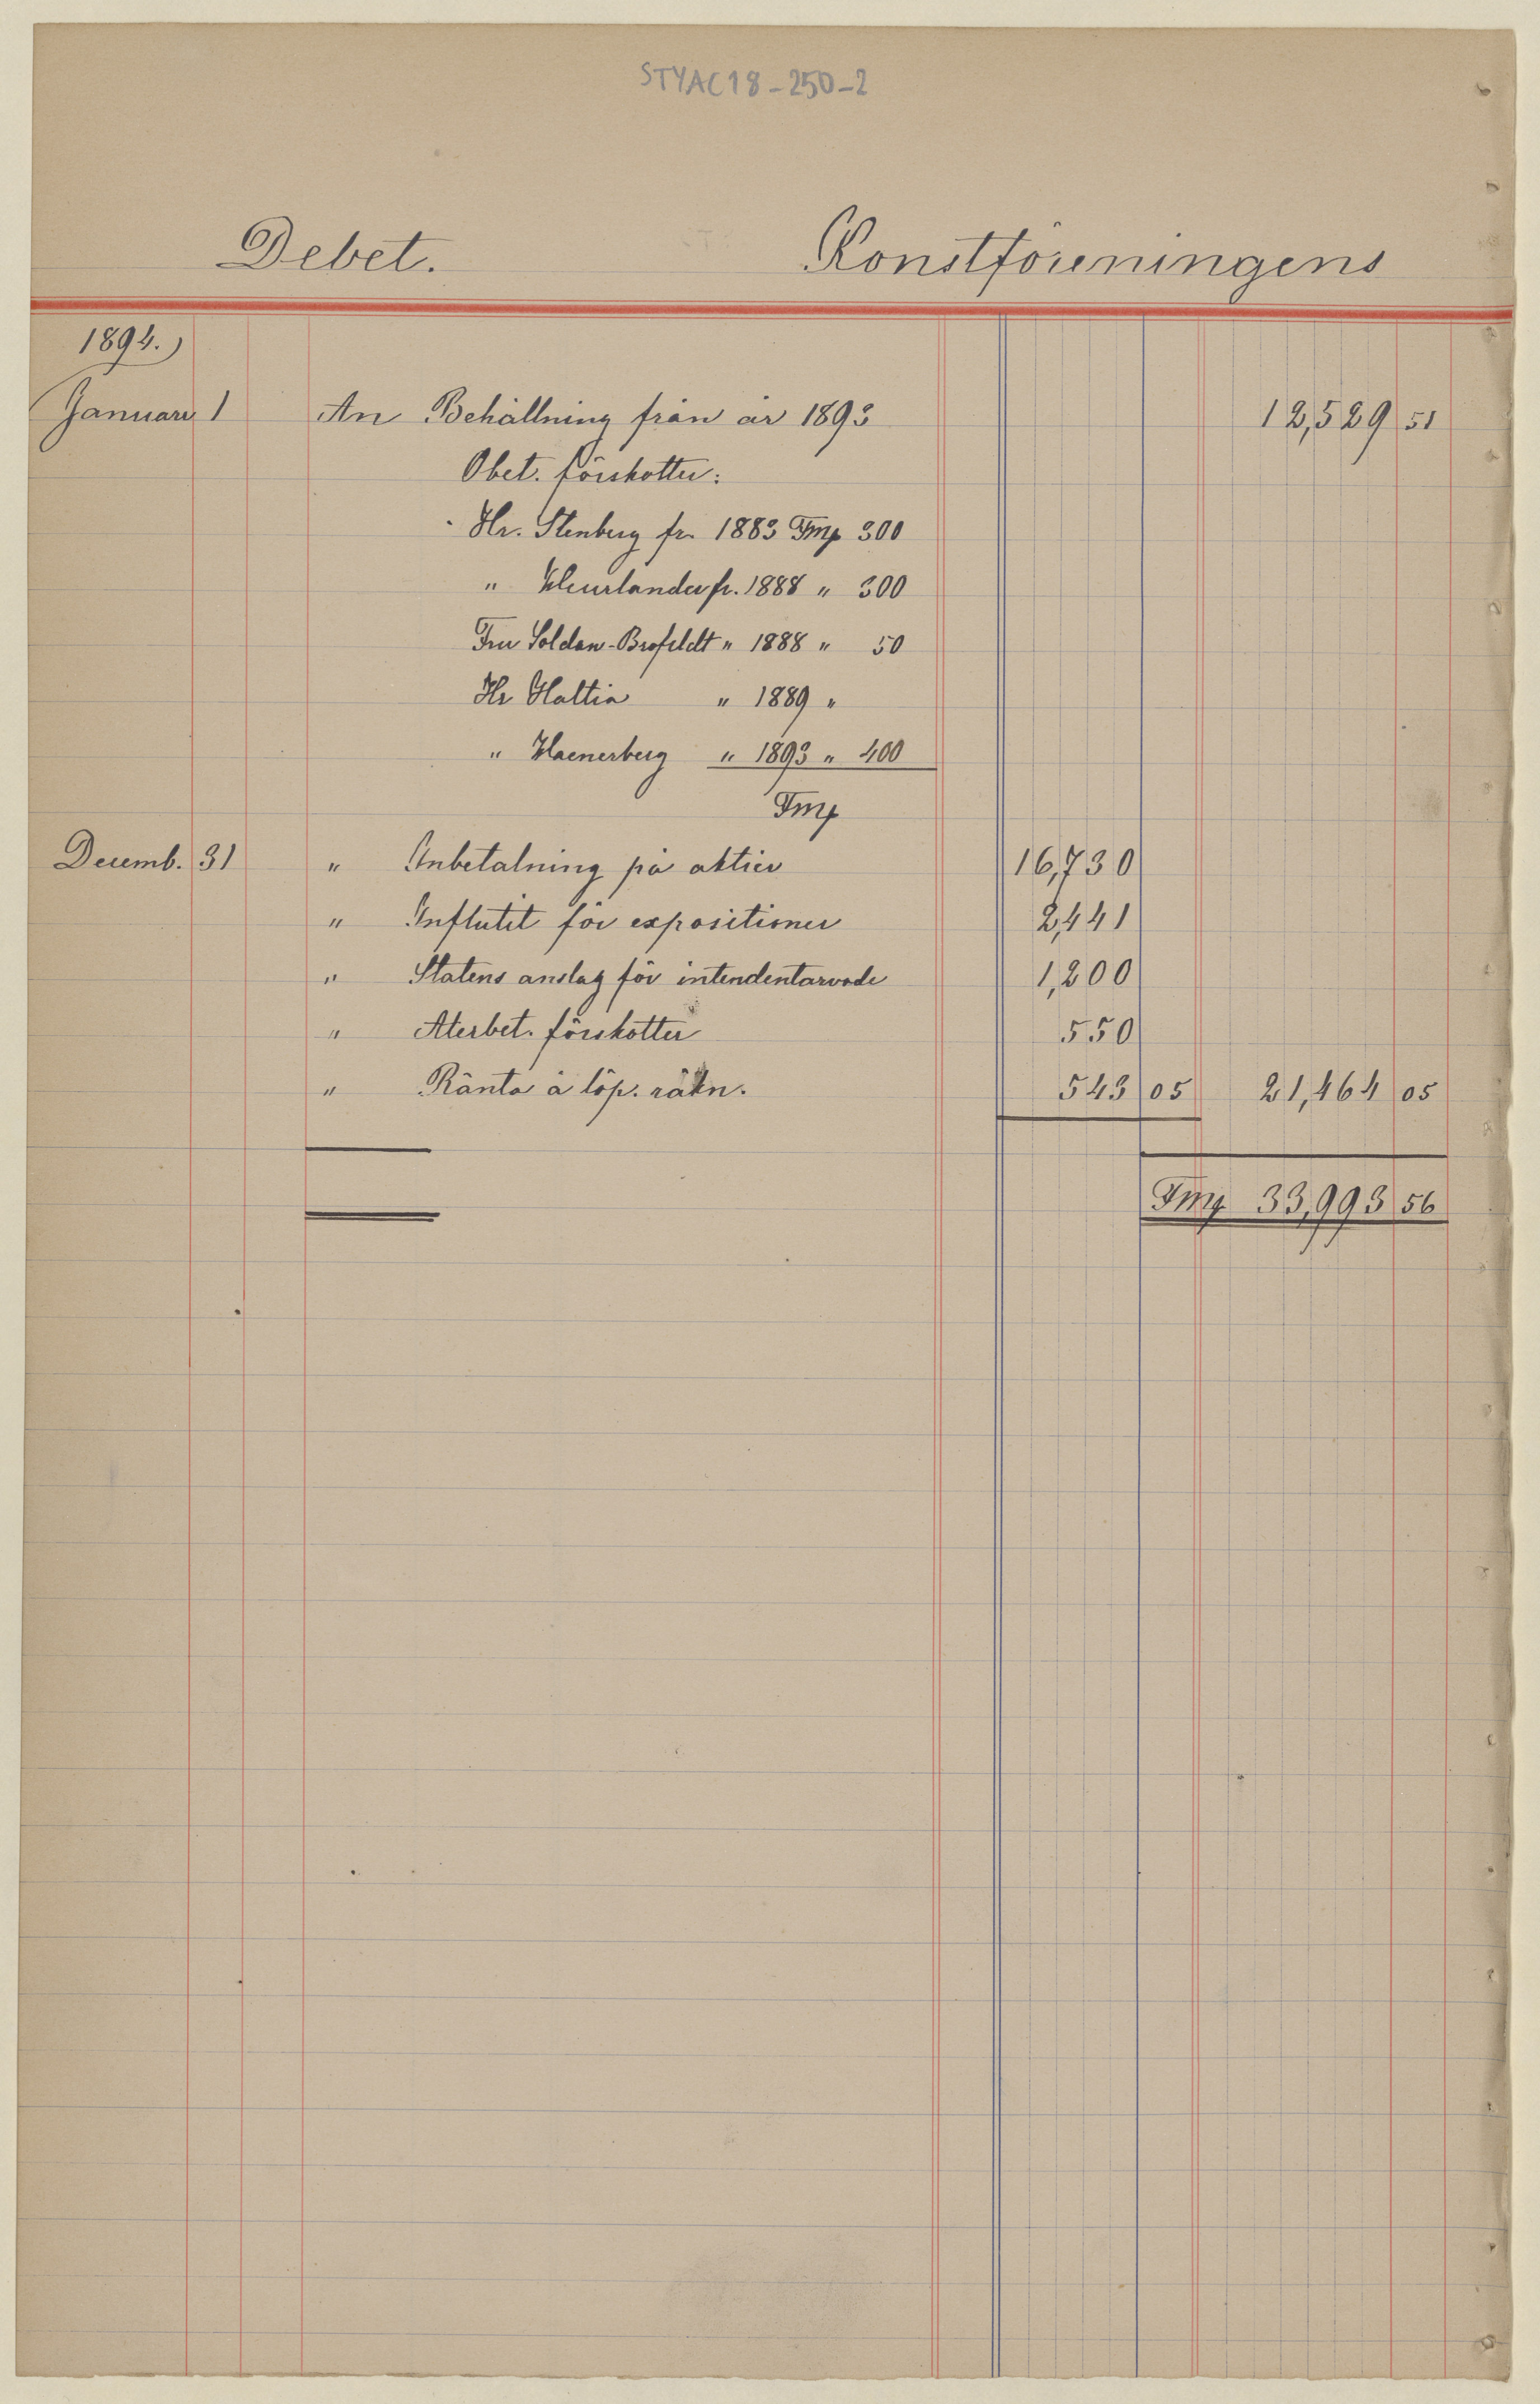 STYAC18-250-2
Debet. Konstföreningens
1894.
Januari 1 An Behållning från år 1893 12,529 51
Obet. förskotter:
Hr. Stenberg fr. 1883 Fmp 300
" fr. 1888 " 300
Fru Soldan-Brofeldt " 1888 " 50
Hr " 1889 "
" " 1893 " 400
Fmp
Decemb. 31 " Inbetalning på aktier 16,730
" Influtit för expositioner 2,441
" Statens anslag för intendentarvode 1,200
" Återbet. förskotter 550
" Ränta à löp. räkn. 543 05 21,464 05
Fmp 33,993 56